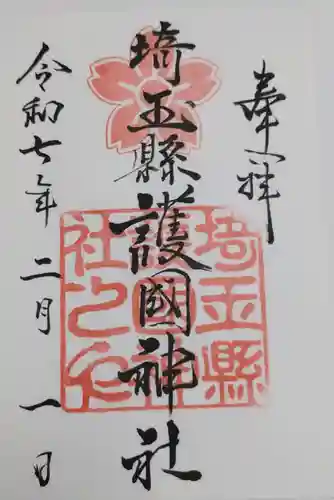 奉拝
埼玉縣護國神社
令和七年 二月 一日
埼玉縣
護國神
社之印